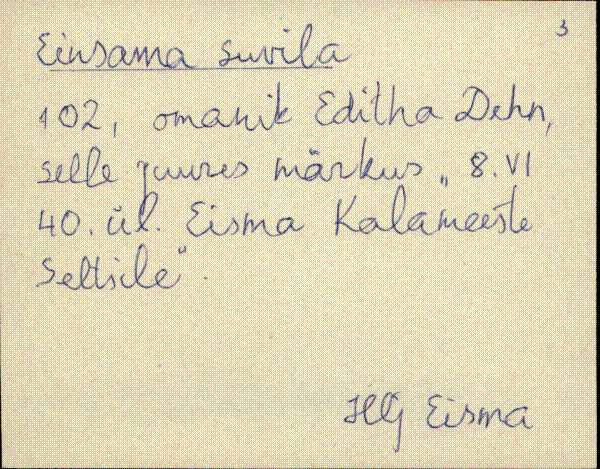 3
Einsama suvila
102, omanik Editha Dehn,
selle juures märkus „8. VI
40. ül. Eisma Kalameeste
Seltsile“.
HlG Eisma